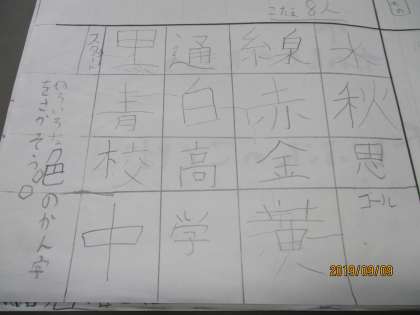 こたえ 8人
スタート
黒 通 線 水
青 白 赤 秋
校 高 金 思
中 学 黄 ゴール
いろいろな色のかん字
をさがそう。
2019/09/09